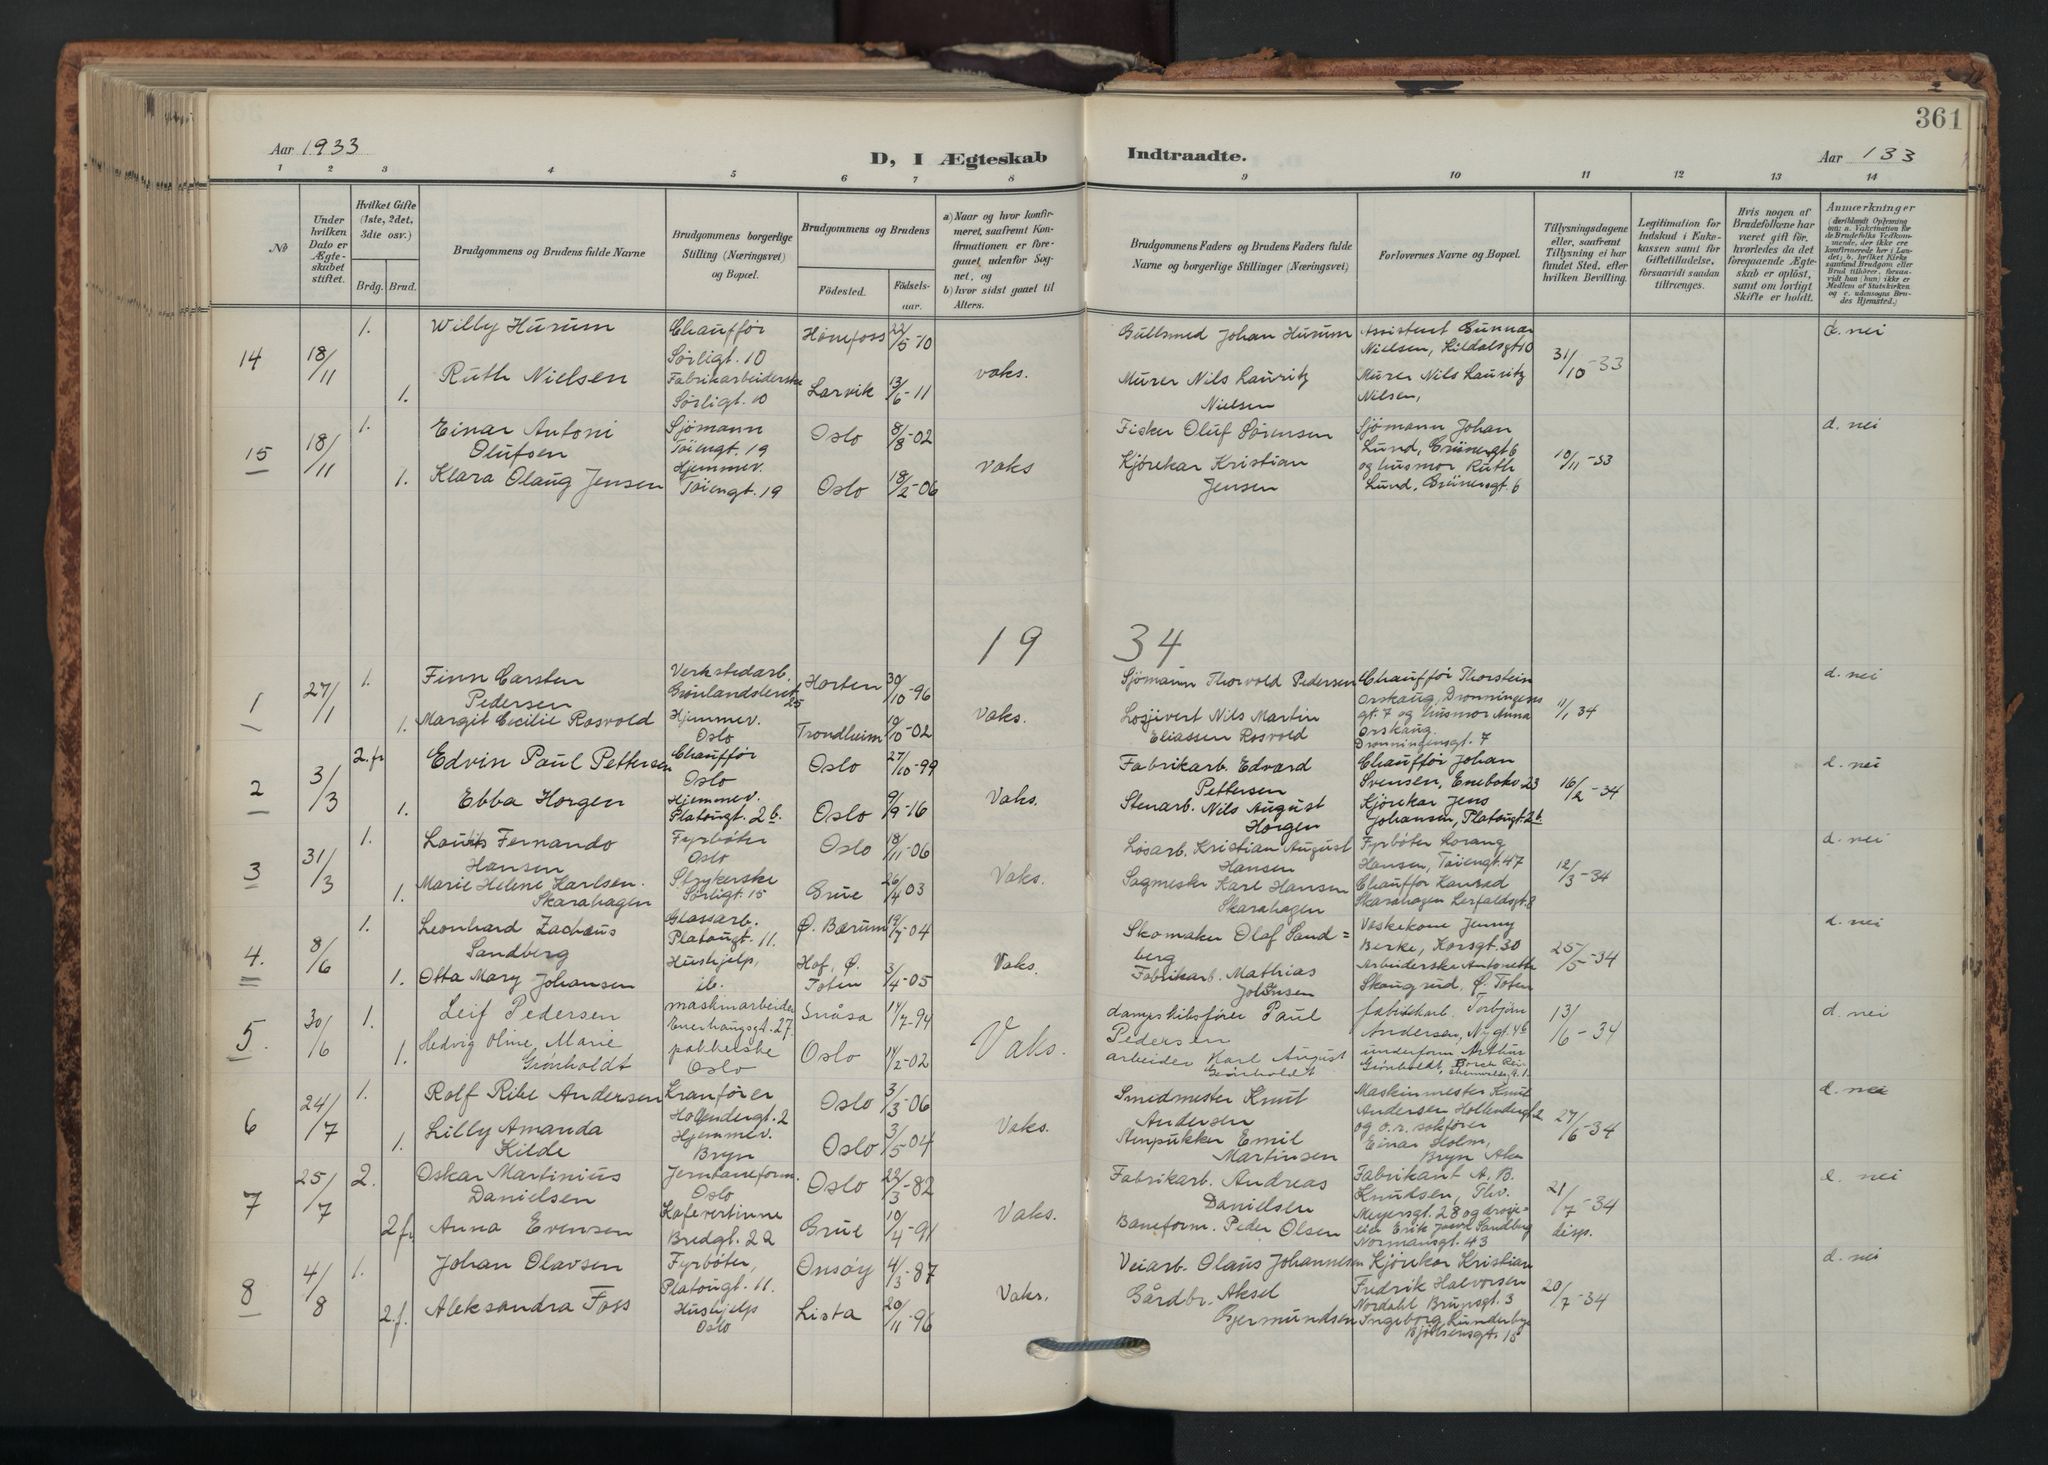 361
Aar 1933
D, I Ægteskab Indtraadte.
Aar 133
1 2 3 4 5 6 7 8 9 10 11 12 13 14
No
Under hvilken Dato er Ægteskabet stiftet.
Hvilket Gifte (1ste, 2det, 3die osv.)
Brdg. Brud.
Brudgommens og Brudens fulde Navne
Brudgommens borgerlige Stilling (Næringsvei) og Bopæl.
Brudgommens og Brudens
Fødested. Fødselsaar.
a) Naar og hvor konfirmeret, saafremt Konfirmationen er foregaaet udenfor Sognet, og
b) hvor sidst gaaet til Alters.
Brudgommens Faders og Brudens Faders fulde Navne og borgerlige Stillinger (Næringsvei)
Forlovernes Navne og Bopæl.
Tillysningsdagene eller, saafremt Tillysning ei har fundet Sted, efter hvilken Bevilling.
Legitimation for Indskud i Enkekassen samt for Giftetilladelse, forsaavidt saadan tiltrænges.
Hvis nogen af Brudefolkene har været gift før, hvorledes da det foregaaende Ægteskab er opløst, samt om lovligt Skifte er holdt.
Anmærkninger
14 18/11 1. Willy Hurum Chauffør Sørligt. 10 Hønefoss 22/5-10 Gullsmed Johan Hurum Assistent Gunnar Nielsen, Kildalsgt 10 d. nei
1. Ruth Nielsen Fabrikarbeiderske Sørligt. 10 Larvik 13/6-11 vaks. Murer Nils Lauritz Nielsen Murer Nils Lauritz Nilsen, 31/10-33
15 18/11 1. Einar Antoni Olufsen Sjømann Tøiengt. 19 Oslo 8/8-02 Fisker Oluf Sørensen Sjømann Johan Lund, Grünergt 6 d. nei
1. Klara Olaug Jensen Hjemmev. Tøiengt. 19 Oslo 18/2-06 Vaks Kjørekar Kristian Jensen og husmor Ruth Lund, Grünersgt. 6 10/11-33
1934
1 27/1 1. Finn Carsten Pedersen Verkstedarb. Grønlandsleret 25 Horten 30/10-96 Sjømann Thorvold Pedersen Chauffør Thorstein Orskaug, Dronningens gt. 7 d. nei
1. Margit Cecilie Rosvold Hjemmev. Oslo Trondheim 19/10-02 Vaks. Losjivert Nils Martin Eliassen Rosvold og husmor Anna Orskaug. Dronningensgt. 7 11/1 34
2 3/3 2. fr Edvin Paul Pettersen Chauffør Oslo Oslo 27/10-99 Fabrikarb. Edvard Pettersen Chauffør Johan Svensen, Enebakv 23 d. nei
1. Ebba Horgen Hjemmev. Platougt. 2b. Oslo 9/9-16 Vaks. Stenarb. Nils August Horgen Kjørskar Jens Johansen, Platougt. 2b 16/2-34
3 31/3 1. Laurits Fernando Hansen Fyrbøter Oslo Oslo 18/11-06 Løsarb. Kristian August Hansen Fyrbøter Lorang Hansen, Tøiengt. 47 d. nei
1. Marie Helene Karlsen Skarahagen Strykerske Sørligt. 15 Grue 26/4 03 Vaks. Sagmester Karl Hansen Skarahagen Chauffør Konrad Skarahagen Lerfaldsgt. 8 12/3-34
4. 8/6 1. Leonhard Zachæus Sandberg Glassarb. Platougt. 11. Ø. Bærum 19/7-04 Skomaker Olaf Sandberg Vaskekone Jenny Berke, Korsgt. 30 d. nei
1. Otta Mary Johansen Hushjelp, ib. Hof, Ø. Toten 3/4-05 Vaks. Fabrikarb. Mathias Johansen Arbeiderske Antonette Skaugrud, Ø. Toten 25/5-34
5. 30/6 1. Leif Pedersen maskinarbeider Enerhaugsgt. 27 Snåsa 14/7-94 dampskibsfører Paul Pedersen fabrikkarb. Torbjørn Andersen, Nygt. 46 d. nei
1. Hedvig Oline Marie Grønholdt pakkerske Oslo Oslo 14/2-02 Vaks. arbeider Karl August Grønholdt underform. Arthur Grønholdt, 13/6-34
6 24/7 1. Rolf Ribe Andersen Kranfører Hollendergt. 2 Oslo 3/3-06 Smedmester Knut Andersen Maskinmester Knut Andersen Hollendergt. 2 d. nei
1. Lilly Amanda Kilde Hjemmev. Bryn Oslo 3/5-04 Vaks. Stenpukker Emil Martinsen og o.r. sakfører Einar Holm, Bryn Aker 27/6-34
7 25/7 2. Oskar Martinius Danielsen Jernbaneform. Oslo Oslo 22/3-82 Fabrikarb. Andreas Danielsen Fabrikant A. B. Knudsen, Thv. Meyersgt. 28 d. nei
2 fr Anna Evensen Kafevertinne Bredgt. 22 Grue 10/4-91 Vaks. Baneform. Peder Olsen og drosjeeier Erik Jacob Sandberg Normansgt. 43 21/7-34 disp.
8 4/8 1. Johan Olavsen Fyrbøter, Platougt. 11. Onsøy 4/3-87 Veiarb. Olaus Johannesen Kjørekar Kristian Fredrik Halvorsen Nordahl Brunsgt. 3 d. nei
2. f. Aleksandra Foss Hushjelp Oslo Lista 20/11-96 Vaks. Gårdbr. Aksel Gjermundsen Ingeborg Lunderbye Bjølsensgt. 15 20/7-34